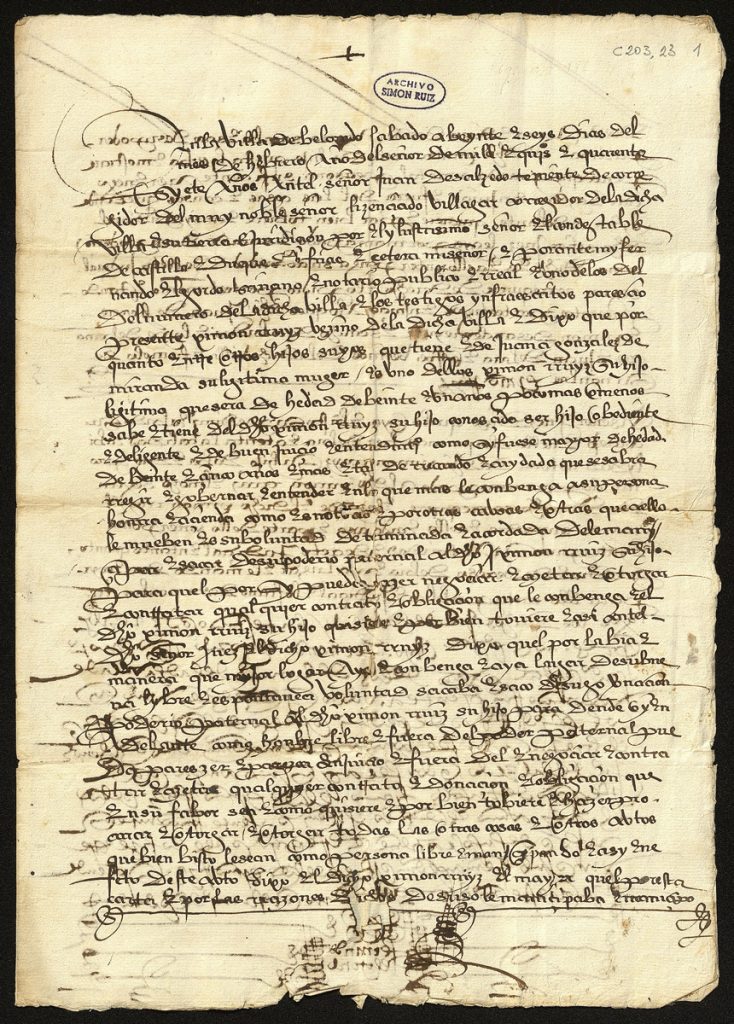 C 203, 23 1
ARCHIVO
SIMON RUIZ
En la villa de belorado sabado a beynte e seys dias del
mes de hebrero Año del señor de mill e quis e quarenta
E syete Años Antel señor Juan de salzedo teniente de corre
gidor del muy noble señor lizenciado villagar corregidor de la dicha
villa e su tierra e por el yllustrisimo señor el condestable
de castilla e duque de frias etcetera mi señor e por ante my fer
nando notario publico e real e uno de los del
del numero de la dicha villa e los testigos ynfraescritos parescio
presente ximon rruyz vezino de la dicha villa e dixo que por
quanto entre otros hijos suyos que tiene e de Juana gonzales de
miranda su ligitima muger es uno dellos ximon rruyz su hijo
ligitimo que sera de hedad de beinte e un anos poco mas o menos
sabe e tiene del dho ximon rruyz su hijo conoscido ser hijo obediente
e deligente e de buen juicio e entendimiento como sy fuese mayor de hedad
de beinte e cinco años e tal de rrecaudo e que se sabra
rregir e gobernar e entender en lo que mas le conbenga a su persona
honrra e azienda como es notorio e por otras cabsas justas que a ello
le mueben es su boluntad determinada e acordada de le
e sacar de su poderio paternal al dho ximon rruiz su hijo
para quel por sy pueda e negociar e acetar e otorgar
e contratar qual quier contrato e obligacion que le conbenga e el
dho ximon rruiz su hijo quisiere e por bien toviere e asi antel
dho señor el dicho ximon rruyz dixo quel por la bia e
manera que mejor lugar aya e conbenga e aya lugar de su bue
na lybre e espontanea voluntad sacaba e saco de
poderio paternal al dho ximon rruiz su hijo para dende oy en
adelante como honbre libre e fuera del poder paternal pue
da parezer e parezca en juicio e fuera del e negociar e contra
tar e acetar qualquier contrato e donacion e obligacion que
en su fabor sea como quisiere e por bien tobiere e hazer pro
curar e otorgar e otorgar todas las otras cosas e otros abtos
que bien bisto le sean como persona libre e asy
feto deste abto dixo el dicho ximon rruyz el mayor quel por esta
carta e por las rrazones dichas de suso le